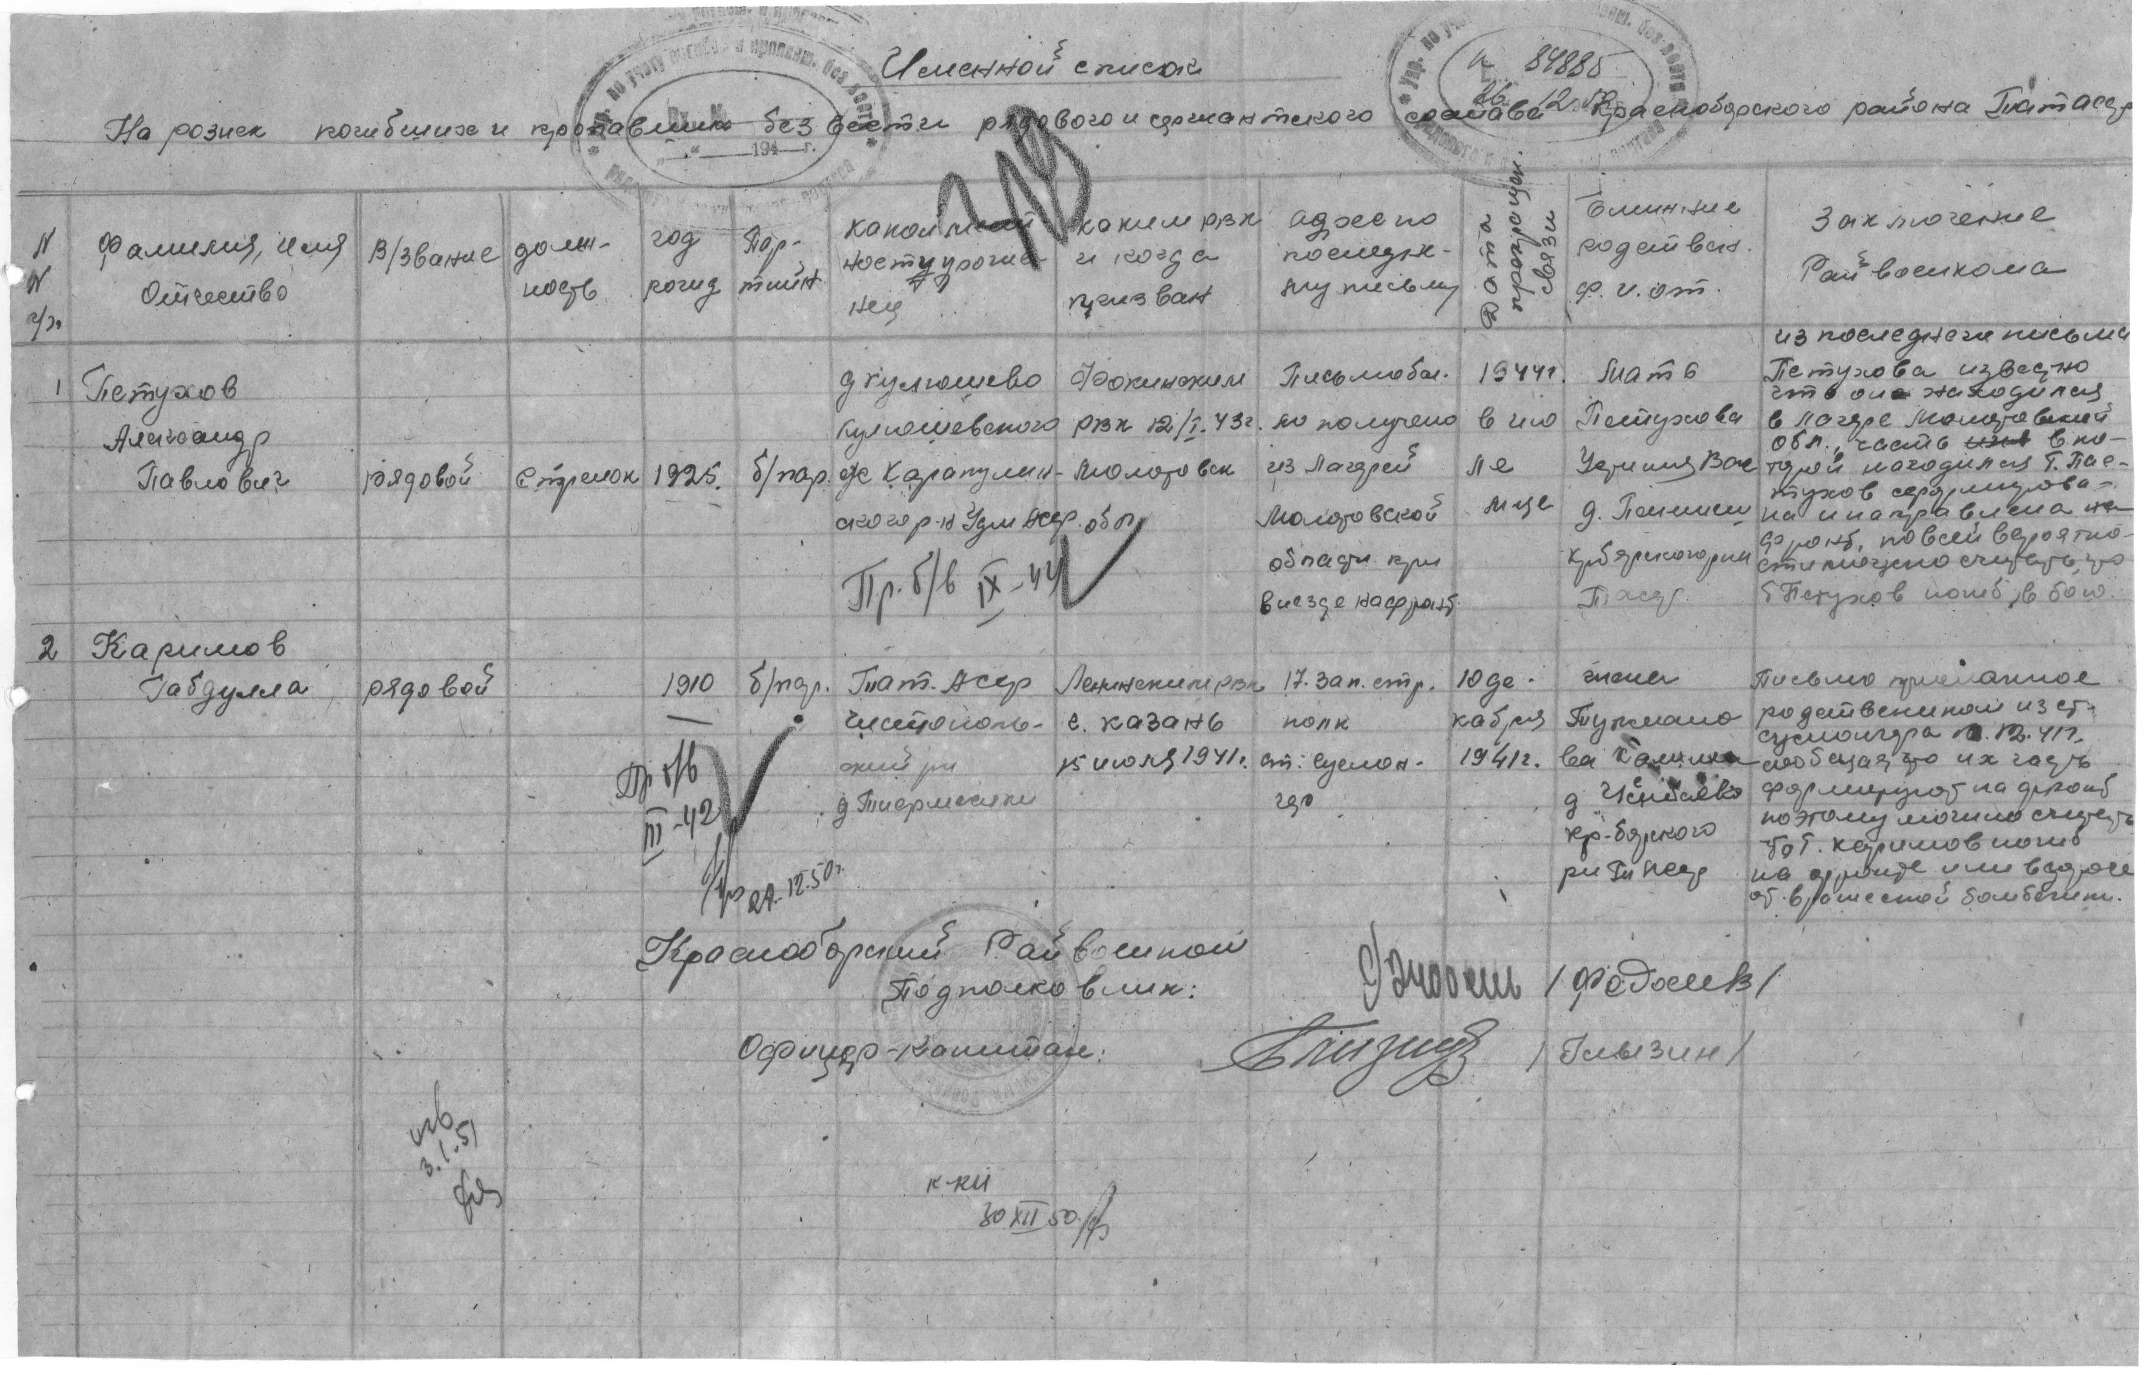 Именной список
На розыск погибших и пропавших без вести рядового и сержантского состава Красноборского района ТатАССР
N 84885
26.12.50
194 г.
N
N
п/п
Фамилия, имя
Отчество
В/звание
долж-
ность
год
рожд
Пар-
тийн
какой мест
ности уроже-
нец
каким рвк
и когда
призван
адрес по
последн-
ему письму
Когда
прекратилась
связь
Ближние
родствен.
ф. и. от.
Заключение
Райвоенкома
1
Петухов
Александр
Павлович
рядовой
стрелок
1925.
б/пар.
д Кулюшево
Кулюшевского
с Карапулин-
ского р-н Удм Асср.
Фокинским
рвк 12/I.43г.
Молотовск
обл
Письмо бы.
ло получено
из лагерей
Молотовской
области при
выезде на фронт.
1944г.
в ию
ле
м-це
Мать
Петухова
Устиния Вас
Тасср.
из последнего письма
Петухова известно
что он находился
в лагере Молотовской
обл., часть в ко-
торой находился т. Пе-
тухов сформирова-
на и направлена на
фронт, по всей вероятно-
сти можно считать, что
т Петухов погиб в бою.
Пр. б/в IX-44
2
Каримов
Габдулла
рядовой
1910
б/пар.
Тат. Асср
Чистополь-
ский р-н
Ленинским рвк
г. Казань
15 июля 1941г.
17. Зап. стр.
полк
ст: Суслон-
гер
10 де-
кабря
1941г.
жена
Тукмано
ва
д
кр-борского
р-н Т Асср
Письмо присланное
родственником из ст.
Суслонгера 12.41г.
сообщая, что их часть
формируют на фронт
поэтому можно считать
что т. Каримов погиб
на фронте или в дороге
от вражеской бомбежки.
Пр б/в
III-42
29.12.50г.
Красноборский Райвоенком
Подполковник:
/Федосеев/
Офицер-капитан:
/Глызин/
3.1.51
30 XII 50